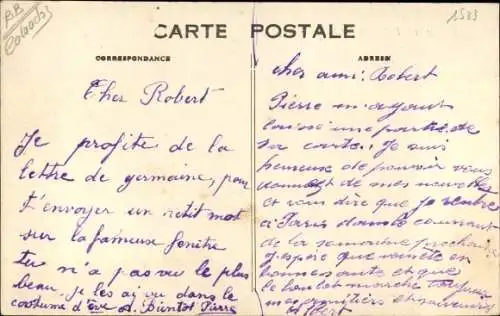 1583
CARTE POSTALE
CORRESPONDANCE
ADRESSE
Cher Robert
Je profite de la
lettre de germaine, pour
t'envoyer un petit mot
sur la fameuse fenêtre
tu n'a pas vu le plus
beau. je les ai vu dans le
costume d'ève A. Bientot Pierre
cher ami: Robert
Pierre m'ayant
laissé une partie de
sa carte. Je suis
heureuse de pouvoir vous
de mes nouvelles
et vous dire que je rentre
a Paris courant
de la semaine prochaine
J'espère que
bonne santé et que
le toujours